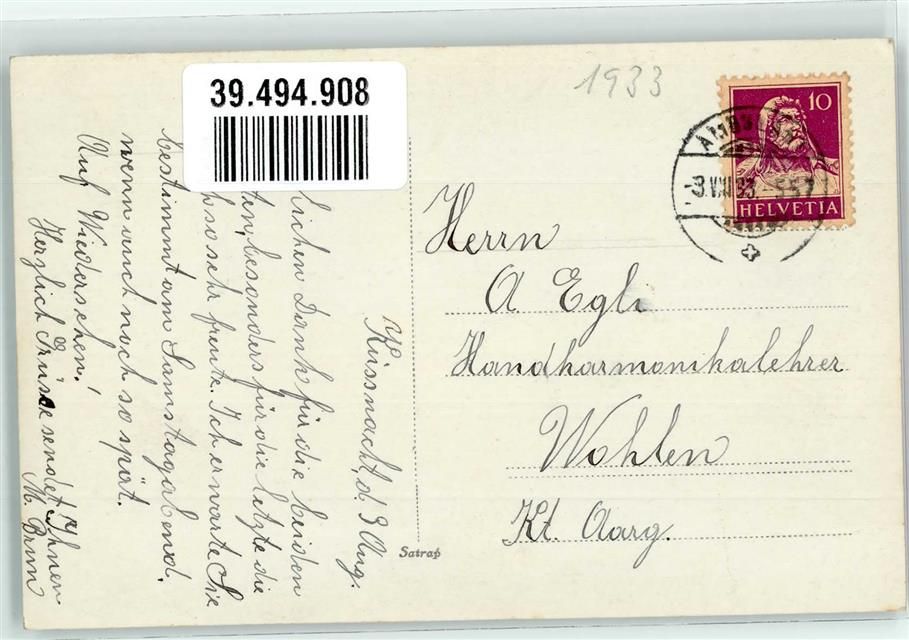 39.494.908
1933
10
HELVETIA
-3.VIII.33.
Küssnacht, d. 3 Aug.
lichen Dank für die beiden
ten, besonders für die letzte die
h so sehr freute. Ich erwarte Sie
bestimmt am Samstag abend,
wenn auch noch so spät.
Auf Wiedersehen!
Herzlich Grüsse sendet Ihnen
M. Brun
Herrn
A. Egli
Handharmonikalehrer
Wohlen
Kt. Aarg.
Satrap